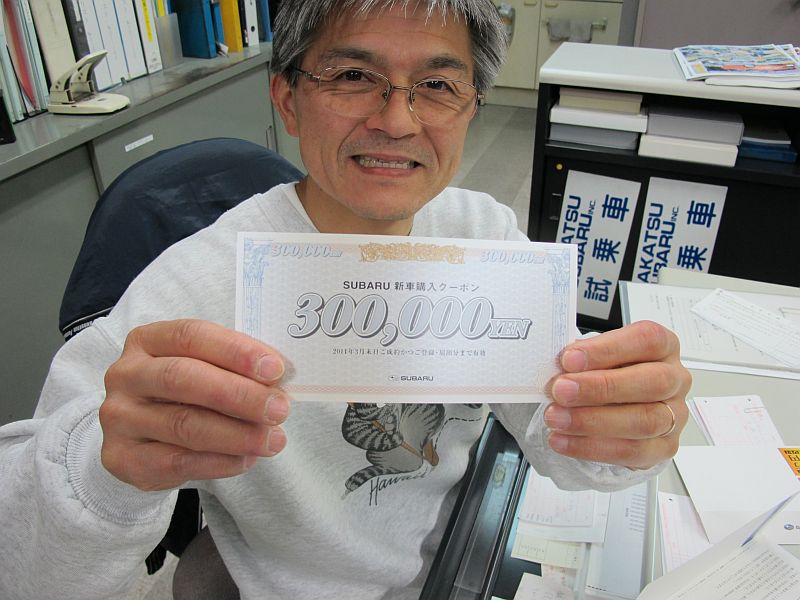 300,000YEN
300,000YEN
SUBARU 新車購入クーポン
300,000YEN
2011年3月末日ご成約かつご登録・届出分まで有効
SUBARU
Hawaii
AKATSU
SUBARU INC.
試乗車
AKATSU
SUBARU INC.
試乗車